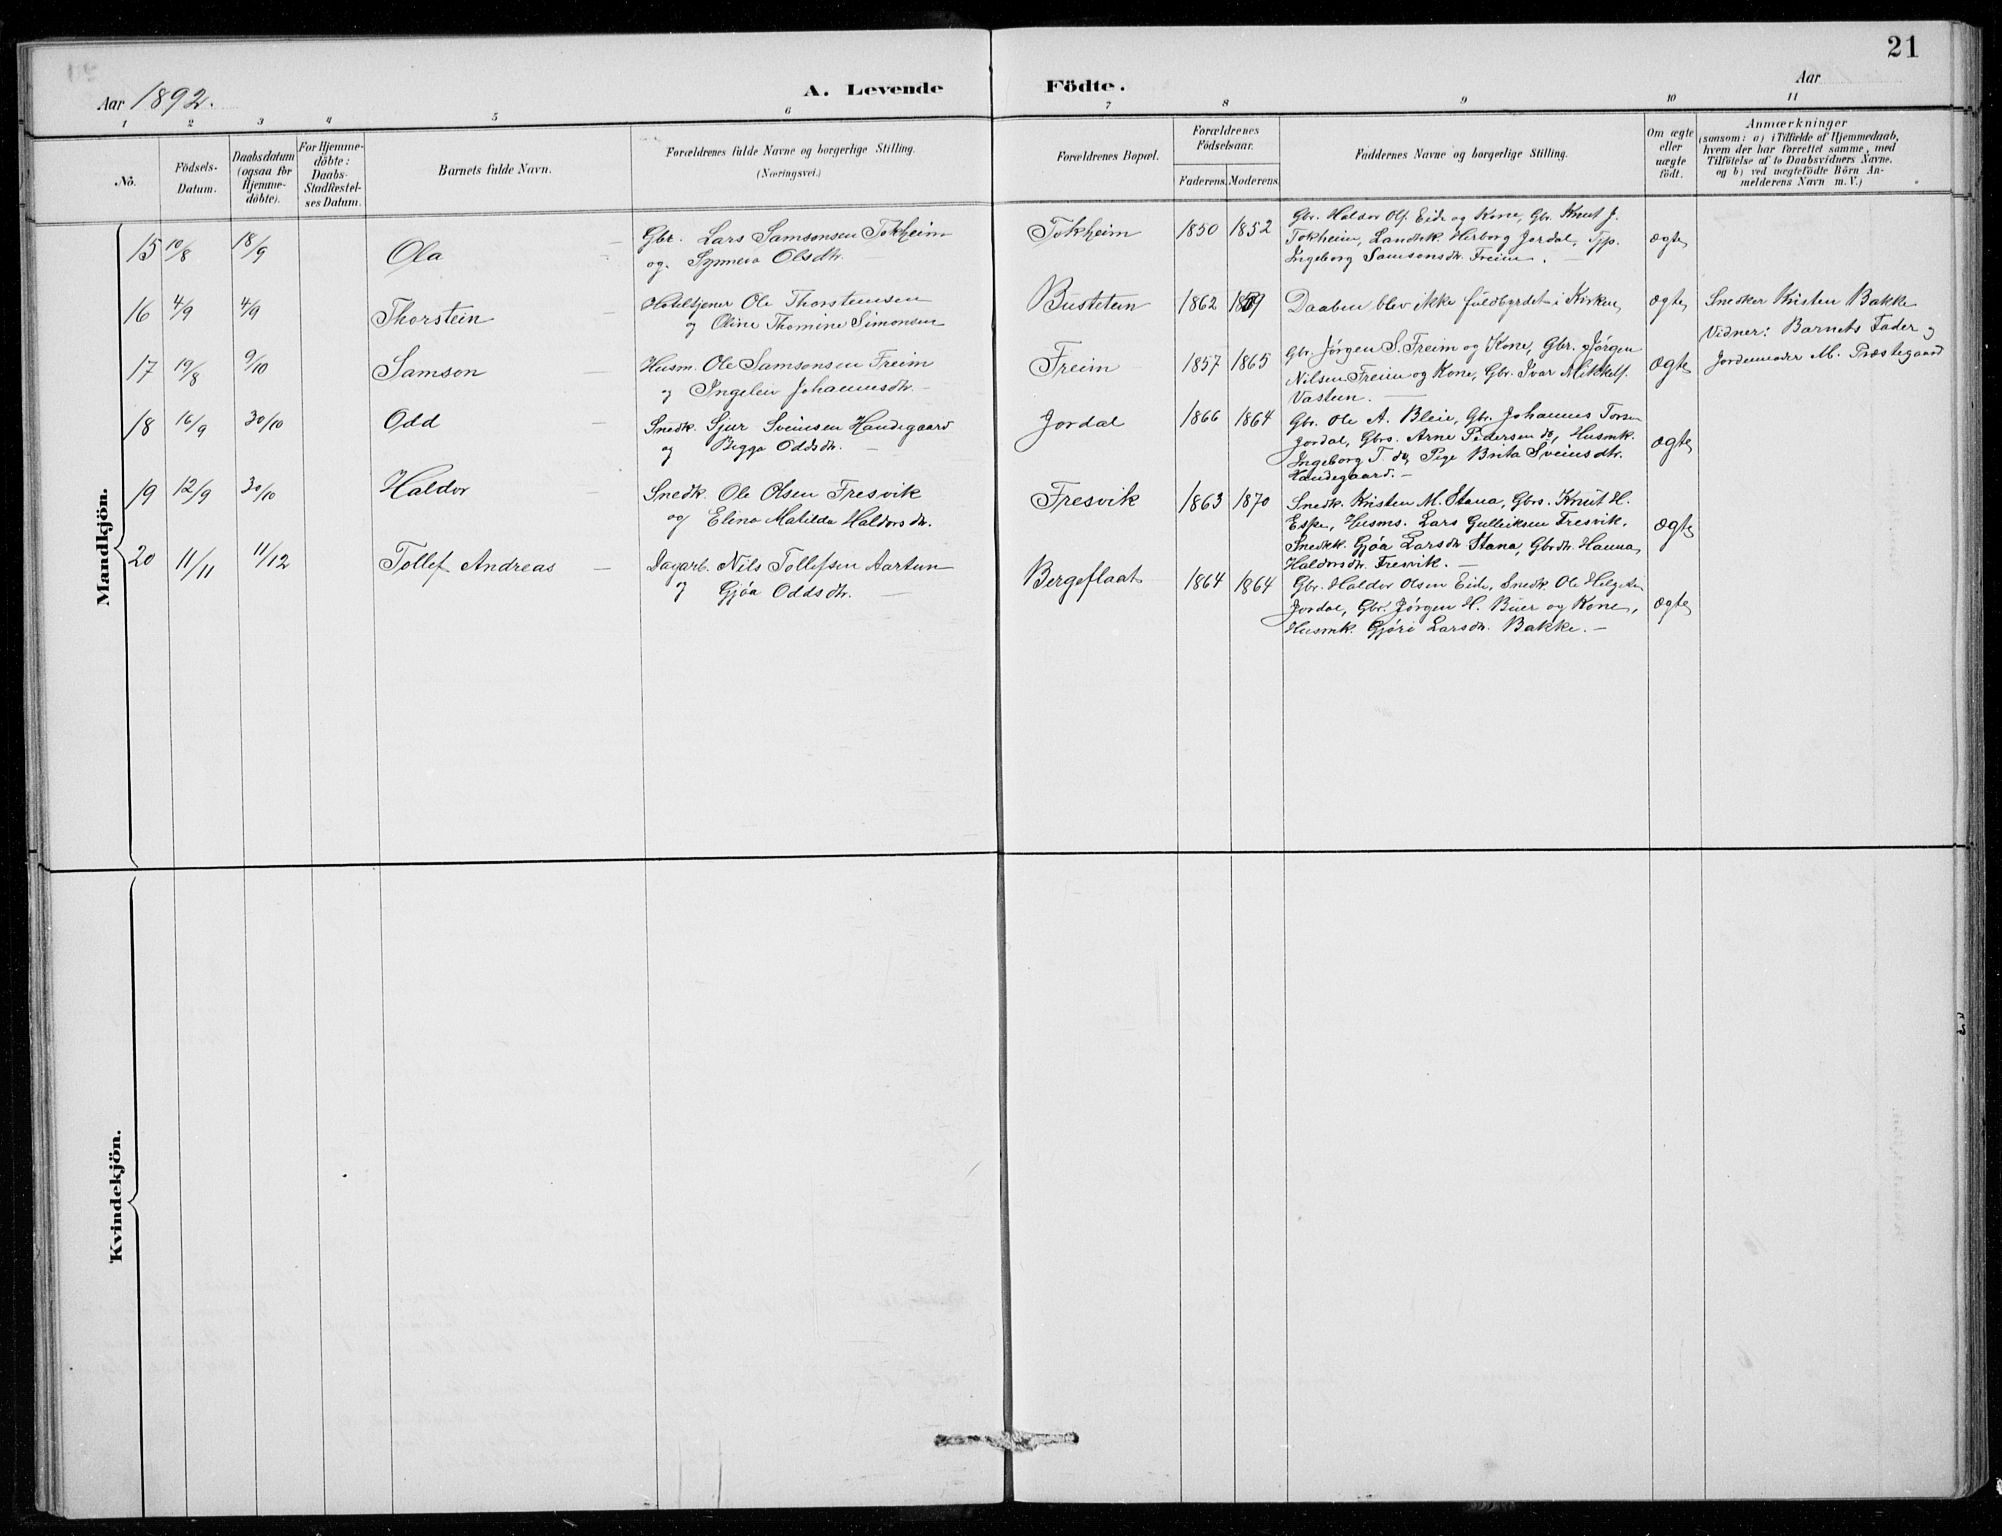 21
Aar 1892. A. Levende Födte. Aar
1 2 3 4 5 6 7 8 9 10 11
No.
Födsels-
Datum.
Daabsdatum
(ogsaa for
Hjemme-
döbte).
For Hjemme-
döbte:
Daabs-
Stadfæstel-
ses Datum.
Barnets fulde Navn.
Forældrenes fulde Navne og borgerlige Stilling.
(Næringsvei.)
Forældrenes Bopæl.
Forældrenes
Födselsaar.
Faderens. Moderens.
Faddernes Navne og borgerlige Stilling.
Om ægte
eller
uægte
födt.
Anmærkninger
(saasom: a) i Tilfælde af Hjemmedaab,
hvem der har forrettet samme, med
Tilföielse af to Daabsvidners Navne.
og b) ved uægtefödte Börn An-
melderens Navn m. V.)
Mandkjön.
15 10/8 18/9 Ola
Gbr. Lars Samsonsen Tokheim
og Synneva Olsdtr.
Tokheim 1850 1852
Gbr. Haldor Ols. Eide og Kone, Gbr. Knut J.
Tokheim, Landhk. Herborg Jordal, Tjp.
Ingeborg Samsonsdtr. Freim.
ægte
16 4/9 4/9 Thorstein
Hoteltjener Ole Thorsteinsen
og Oline Thomine Simonsen
Busteten 1862 1859
Daaben blev ikke fuldbyrdet i Kirken,
ægte
Snedker Kristen Bakke
Vidner: Barnets Fader og
Jordemoder M. Præstegaard
17 19/8 9/10 Samson
Husm. Ole Samsonsen Freim
og Ingeleiv Johannesdtr.
Freim 1857 1865
Gbr. Jørgen S. Freim og Kone, Gbr. Jørgen
Nilsen Freim og Kone, Gbr. Ivar Mikkels.
Vasteun.
ægte
18 16/9 30/10 Odd
Snedk. Sjur Sveinsen Handegaard
og Bigga Oddsdtr.
Jordal 1866 1864
Gbr. Ole A. Bleie, Gbr. Johannes Torsen
Jordal, Gbrs. Arne Pedersen do, Husmk.
Ingeborg T. do, Pige Brita Sveinsdtr.
Handegaard.
ægte
19 12/9 30/10 Haldor
Snedk. Ole Olsen Fresvik
og Elina Matilda Haldorsdtr.
Fresvik 1863 1870
Snedk. Kristen M. Stana, Gbrs. Knut H.
Espe, Husms. Lars Gulleiksen Fresvik,
Snedkk. Gjøa Larsdtr. Stana, Gbrdtr. Hanna
Haldorsdtr. Fresvik.
ægte
20 11/11 11/12 Tollef Andreas
Dagarb. Nils Tollefsen Aartun
og Gjøa Oddsdtr.
Bergeflaat 1864 1864
Gbr. Haldor Olsen Eide, Snedk. Ole Helgesen
Jordal, Gbr. Jørgen H. Buer og Kone,
Husmk. Gjøri Larsdtr. Bakke.
ægte
Kvindekjön.